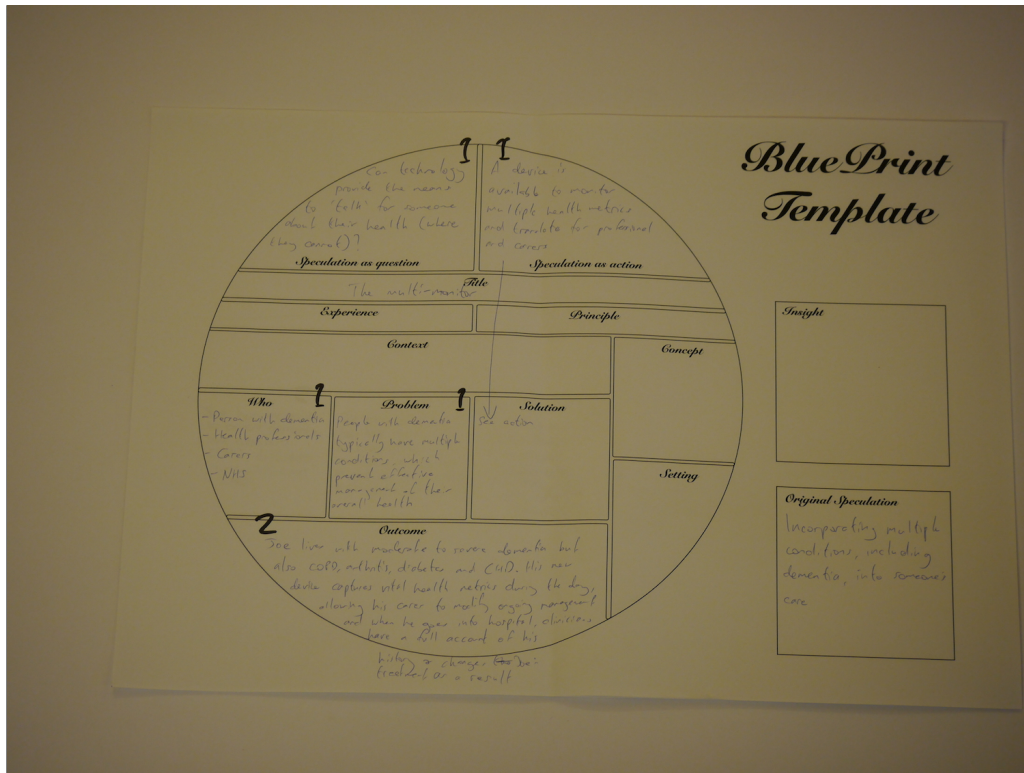 BluePrint
Template
1
Can technology
provide the means
to 'talk' for someone
about their health (where
they cannot)?
Speculation as question
1
A device is
available to monitor
multiple health metrics
and translate for professional
and carers
Speculation as action
Title
The multi-monitor
Experience
Principle
Context
Concept
Who
1
- Person with dementia
- Health professionals
- Carers
- NHS
Problem
1
People with dementia
typically have multiple
conditions, which
prevent effective
management of their
overall health
Solution
See action
Setting
2
Outcome
Joe lives with moderate to severe dementia but
also COPD, arthritis, diabetes and CHD. His new
device captures vital health metrics during the day,
allowing his carer to modify ongoing management
and when he goes into hospital, clinicians
have a full account of his
history & changes Joe's
treatment as a result
Insight
Original Speculation
Incorporating multiple
conditions, including
dementia, into someone's
care